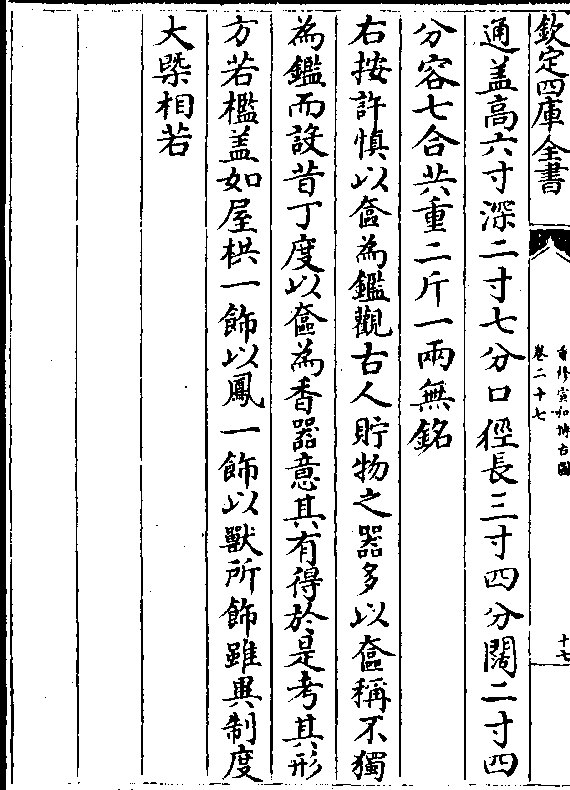 欽定四庫全書
重修宣和博古圖
卷二十七
十七
通盖高六寸深二寸七分口徑長三寸四分闊二寸四
分容七合共重二斤一兩無銘
右按許慎以奩為鑑觀古人貯物之器多以奩稱不獨
為鑑而設昔丁度以奩為香器意其有得於是考其形
方若檻盖如屋栱一飾以鳳一飾以獸所飾雖異制度
大槩相若